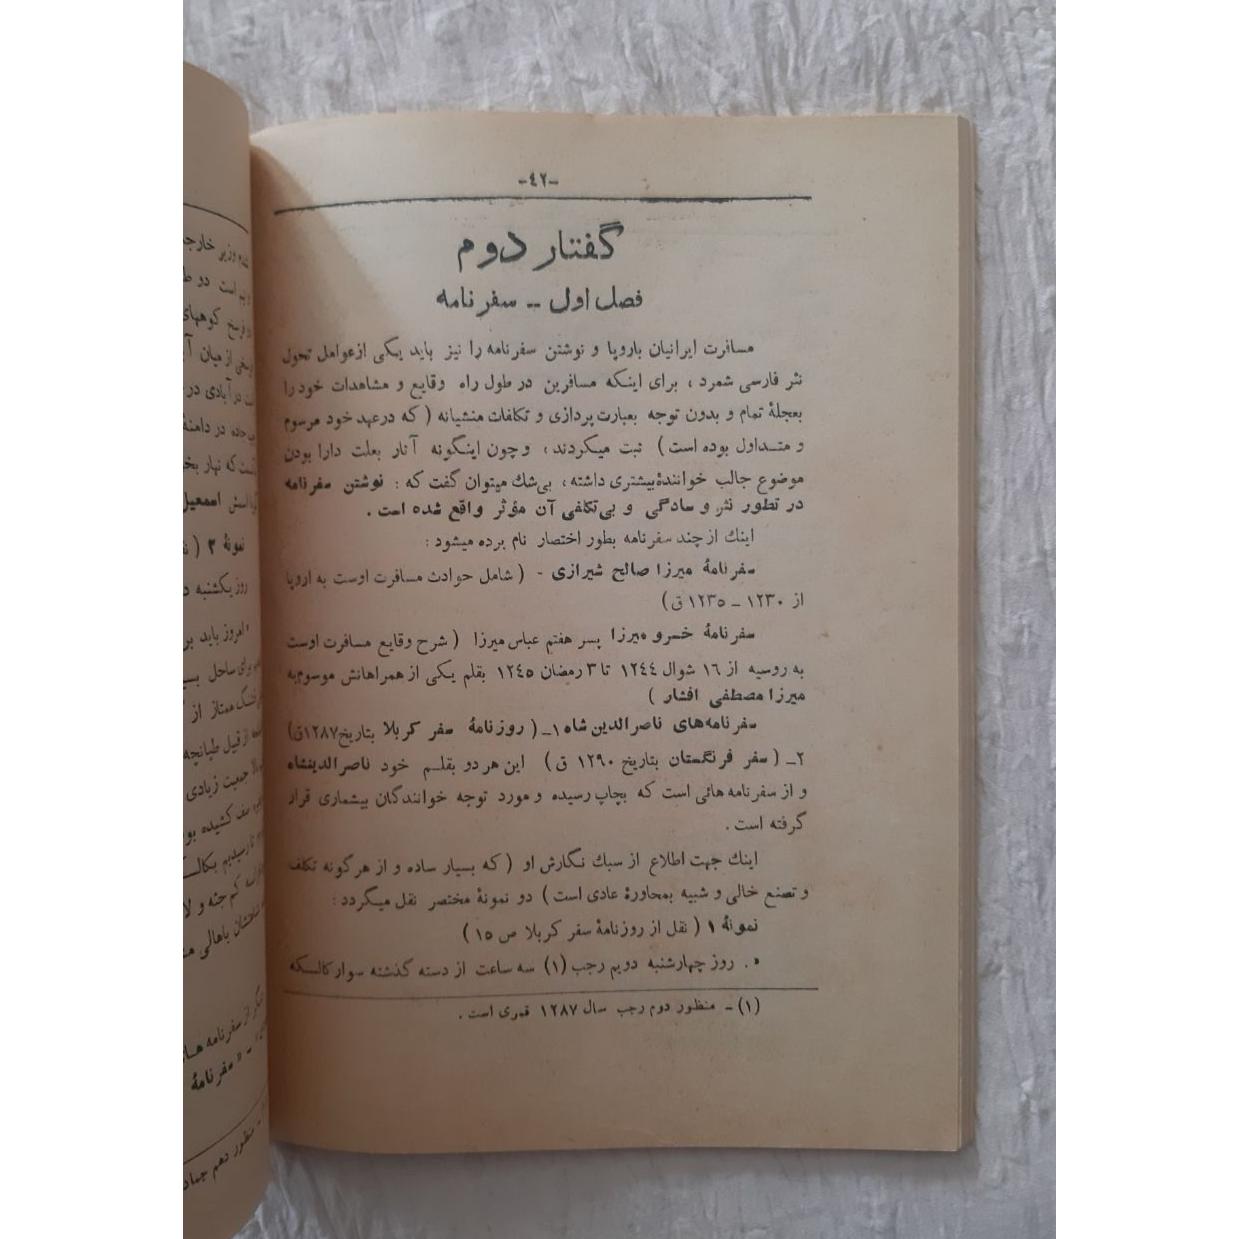 -٤٢-
گفتار دوم
فصل اول -- سفرنامه
مسافرت ایرانیان باروپا و نوشتن سفرنامه را نیز باید یکی ازعوامل تحول
نثر فارسی شمرد ، برای اینکه مسافرین در طول راه وقایع و مشاهدات خود را
بعجلهٔ تمام و بدون توجه بعبارت پردازی و تکلفات منشیانه ( که درعهد خود مرسوم
و متـداول بوده است ) ثبت میکردند ، وچون اینگونه آثار بعلت دارا بودن
موضوع جالب خوانندهٔبیشتری داشته ، بی‌شك میتوان گفت که : نوشتن سفرنامه
در تطور نثر و سادگی و بی‌تکلفی آن مؤثر واقع شده است .
اینك از چند سفرنامه بطور اختصار نام برده میشود :
سفرنامهٔ میرزا صالح شیرازی - ( شامل حوادث مسافرت اوست به اروپا
از ١٢٣٠ - ١٢٣٥ ق)
سفرنامهٔ خسرو میرزا پسر هفتم عباس میرزا ( شرح وقایع مسافرت اوست
به روسیه از ١٦ شوال ١٢٤٤ تا ٣ رمضان ١٢٤٥ بقلم یکی از همراهانش موسوم‌به
میرزا مصطفی افشار )
سفرنامه‌های ناصرالدین شاه ١_ ( روزنامهٔ سفر کربلا بتاریخ ١٢٨٧ق)
٢_ ( سفر فرنگستان بتاریخ ١٢٩٠ ق ) این هر دو بقلـم خود ناصرالدینشاه
و از سفرنامه هائی است که بچاپ رسیده و مورد توجه خوانندگان بیشماری قرار
گرفته است .
اینك جهت اطلاع از سبك نگارش او ( که بسیار ساده و از هرگونه تکلف
و تصنع خالی و شبیه بمحاورهٔ عادی است ) دو نمونهٔ مختصر نقل میگردد :
نمونهٔ ١ ( نقل از روزنامهٔ سفر کربلا ص ١٥ )
« . روز چهارشنبه دویم رجب (١) سه ساعت از دسته گذشته سوار کالسکه
(١) - منظور دوم رجب سال ١٢٨٧ قمری است .
وزیر خارجه
است دو
فرسخ کوههای
از میان
در آبادی در
در دامنهٔ
که نهار
اسمعیل
نمونهٔ ٢ (
روز یکشنبه
امروز باید
برای ساحل
ممتاز از
از قبیل طپانچه
جمعیت زیادی
صف کشیده
رسیدیم
کم جثه و
باهالی
از سفرنامه
- « سفرنامهٔ
- منظور دهم